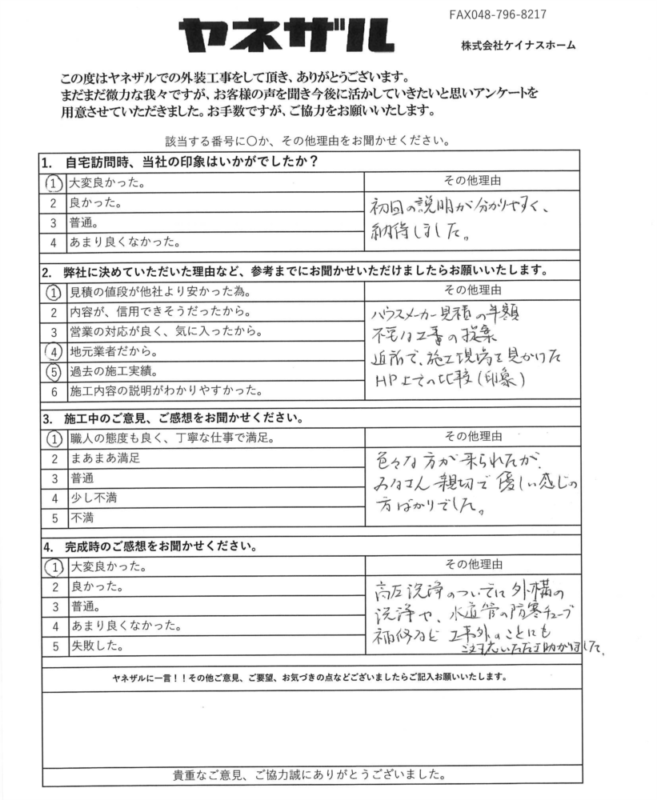 FAX048-796-8217
ヤネザル
株式会社ケイナスホーム
この度はヤネザルでの外装工事をして頂き、ありがとうございます。
まだまだ微力な我々ですが、お客様の声を聞き今後に活かしていきたいと思いアンケートを
用意させていただきました。お手数ですが、ご協力をお願いいたします。
該当する番号に〇か、その他理由をお聞かせください。
1. 自宅訪問時、当社の印象はいかがでしたか？
1 大変良かった。
その他理由
2 良かった。
3 普通。
4 あまり良くなかった。
初回の説明が分かりやすく、
納得しました。
2. 弊社に決めていただいた理由など、参考までにお聞かせいただけましたらお願いいたします。
1 見積の値段が他社より安かった為。
その他理由
2 内容が、信用できそうだったから。
3 営業の対応が良く、気に入ったから。
4 地元業者だから。
5 過去の施工実績。
6 施工内容の説明がわかりやすかった。
ハウスメーカー見積の半額
不要な工事の提案
近所で、施工現場を見かけた
HP上での比較（印象）
3. 施工中のご意見、ご感想をお聞かせください。
1 職人の態度も良く、丁寧な仕事で満足。
その他理由
2 まあまあ満足
3 普通
4 少し不満
5 不満
色々な方が来られたが、
みなさん親切で優しい感じの
方ばかりでした。
4. 完成時のご感想をお聞かせください。
1 大変良かった。
その他理由
2 良かった。
3 普通。
4 あまり良くなかった。
5 失敗した。
高圧洗浄のついでに外構の
洗浄や、水道管の防寒チューブ
補修など 工事外のことにも
ご対応いただき助かりました。
ヤネザルに一言！！その他ご意見、ご要望、お気づきの点などございましたらご記入お願いいたします。
貴重なご意見、ご協力誠にありがとうございました。